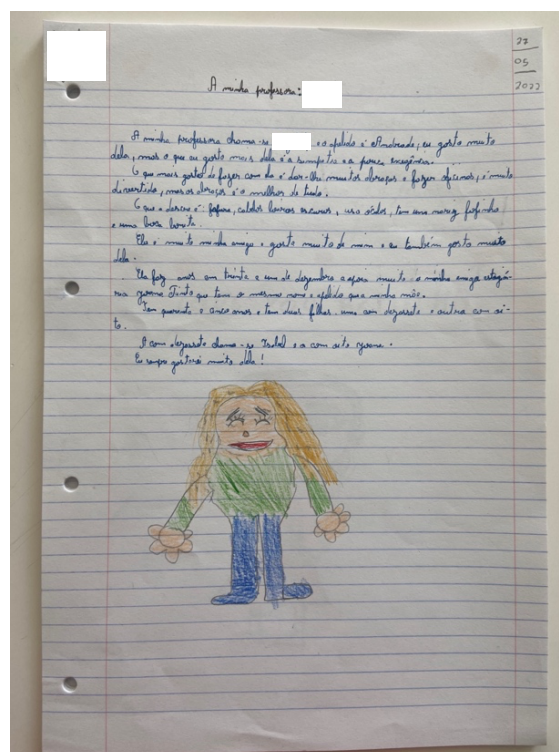 22
05
2023
A minha professora:
A minha professora chama-se e o apelido é Andrade, eu gosto muito
dela, mas o que eu gosto mais dela é a simpatia e a pouca exigência.
O que mais gosto de fazer com ela é dar-lhe muitos abraços e fazer oficinas, é muito
divertido, mas os abraços é o melhor de tudo.
O que a descreve é: fofura, cabelos loiros escuros, usa óculos, tem uma nariz fofinho
e uma boca bonita.
Ela é muito minha amiga e gosta muito de mim e eu também gosto muito
dela.
Ela faz anos em trinta e um de dezembro e apoia muito a minha amiga
que tem o mesmo nome e apelido que a minha mãe.
Tem quarenta e cinco anos e tem duas filhas, uma com dezassete e outra com oi-
to.
A com dezassete chama-se Isabel e a com oito
Eu sempre gostarei muito dela!